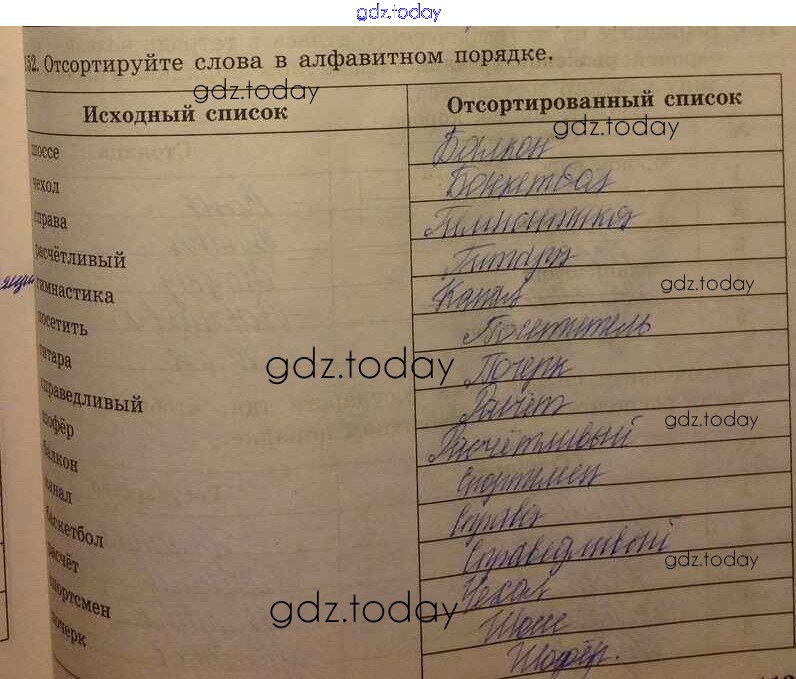 gdz.today
152. Отсортируйте слова в алфавитном порядке.
gdz.today
Исходный список
Отсортированный список
gdz.today
шоссе
чехол
справа
расчётливый
гимнастика
посетить
гитара
справедливый
шофёр
балкон
канал
баскетбол
расчёт
спортсмен
почерк
Балкон
Баскетбол
Гимнастика
Гитара
Канал
gdz.today
Посетитель
gdz.today
Почерк
Расчёт
gdz.today
Расчётливый
Спортсмен
Справа
Справедливый
gdz.today
Чехол
gdz.today
Шоссе
Шофёр.